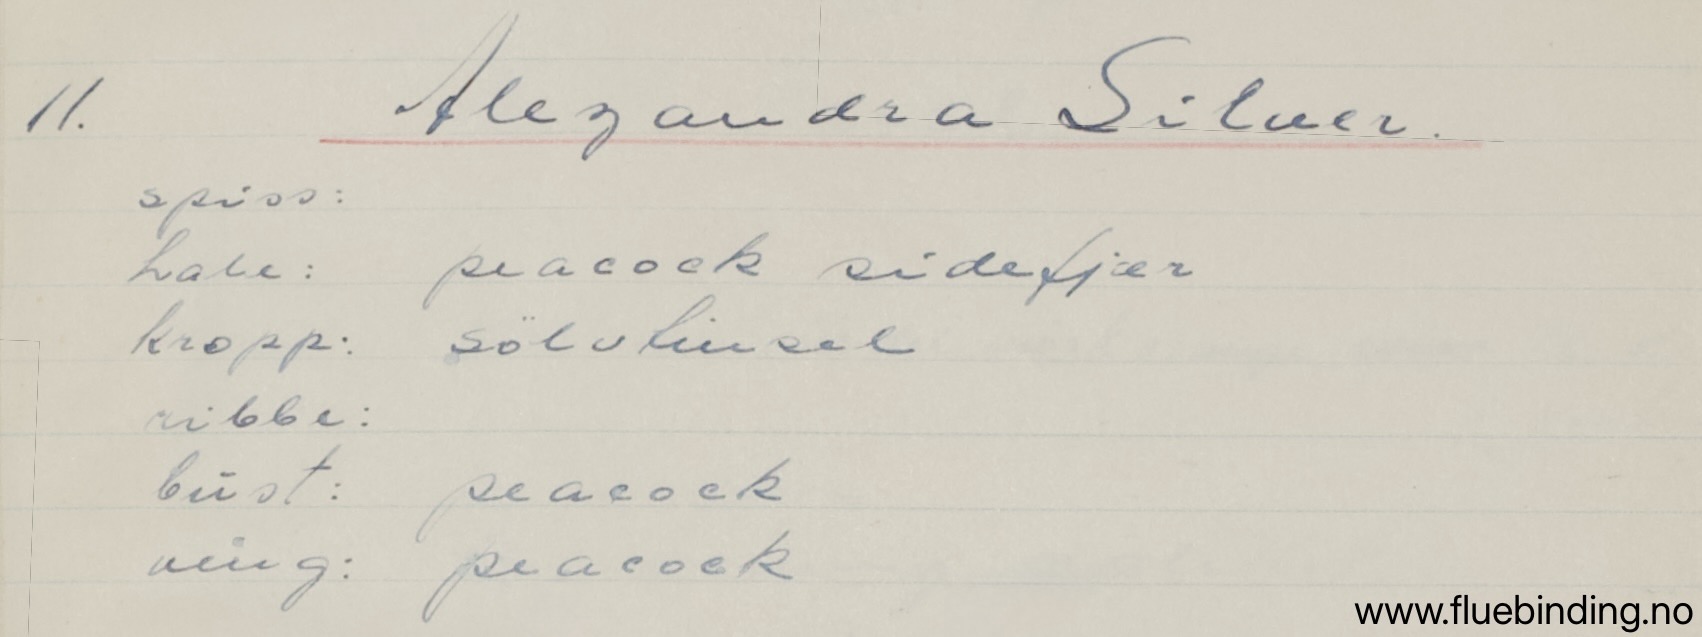 11. Alexandra Silver.
spiss:
hale: peacock sidefjær
kropp: sölvtinsel
ribbe:
büst: peacock
ving: peacock
www.fluebinding.no